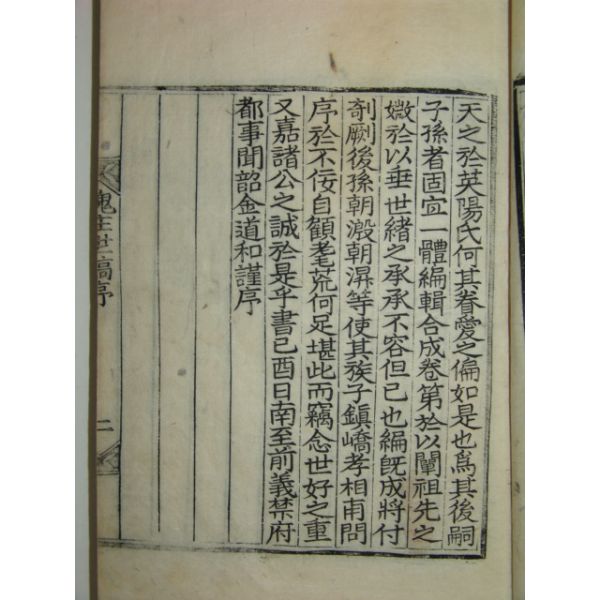 天之於英陽氏何其眷愛之偏如是也爲其後嗣
子孫者固宜一體編輯合成卷第於以闡祖先之
媺於以垂世緖之承承不容但已也編旣成將付
剞劂後孫朝瀔朝湃等使其族子鎭嶠孝相甫問
序於不佞自顧耄荒何足堪此而竊念世好之重
又嘉諸公之誠於是乎書己酉日南至前義禁府
都事聞韶金道和謹序
世稿序
二